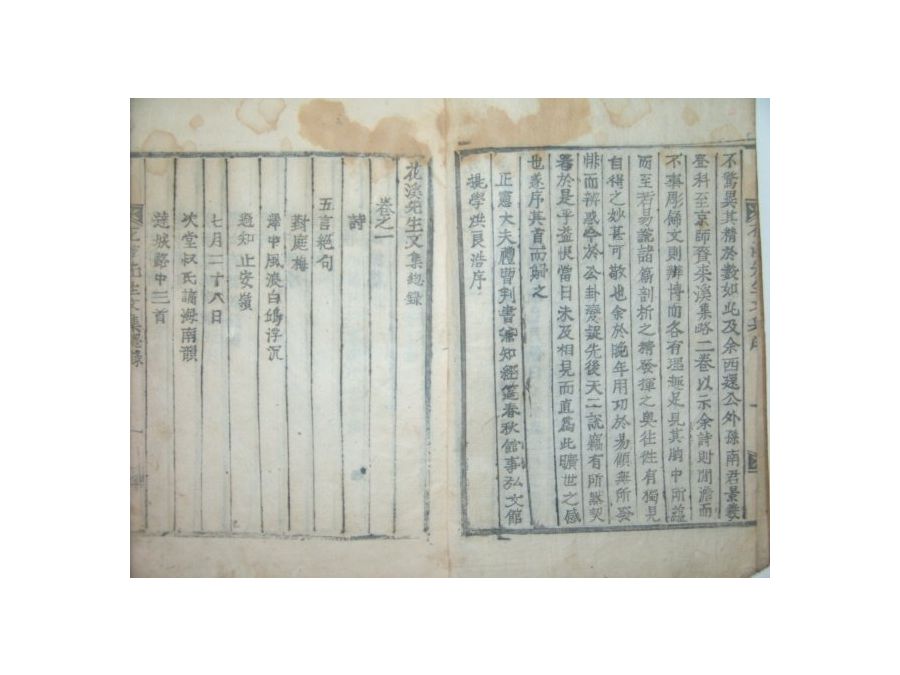 不驚異其精於數如此及余西還公外孫南君景羲
登科至京師賚來溪集略二卷以示余詩則閒澹而
不事彫飾文則辨博而各有理趣足見其胸中所蘊
而至若易說諸篇剖析之精發揮之奧往往有獨見
自得之妙甚可敬也余於晚年用功於易頗無所發
悱而辨惑今於公卦變說先後天二說竊有所默契
者於是乎益恨當日未及相見而直爲此曠世之感
也遂序其首而歸之
正憲大夫禮曹判書兼知經筵春秋館事弘文館
提學洪良浩序
花溪先生文集總錄
卷之一
詩
五言絕句
對庭梅
舟中風浪白鷗浮沉
過知止安嶺
七月二十八日
次堂叔氏謫海南韻
達城路中三首